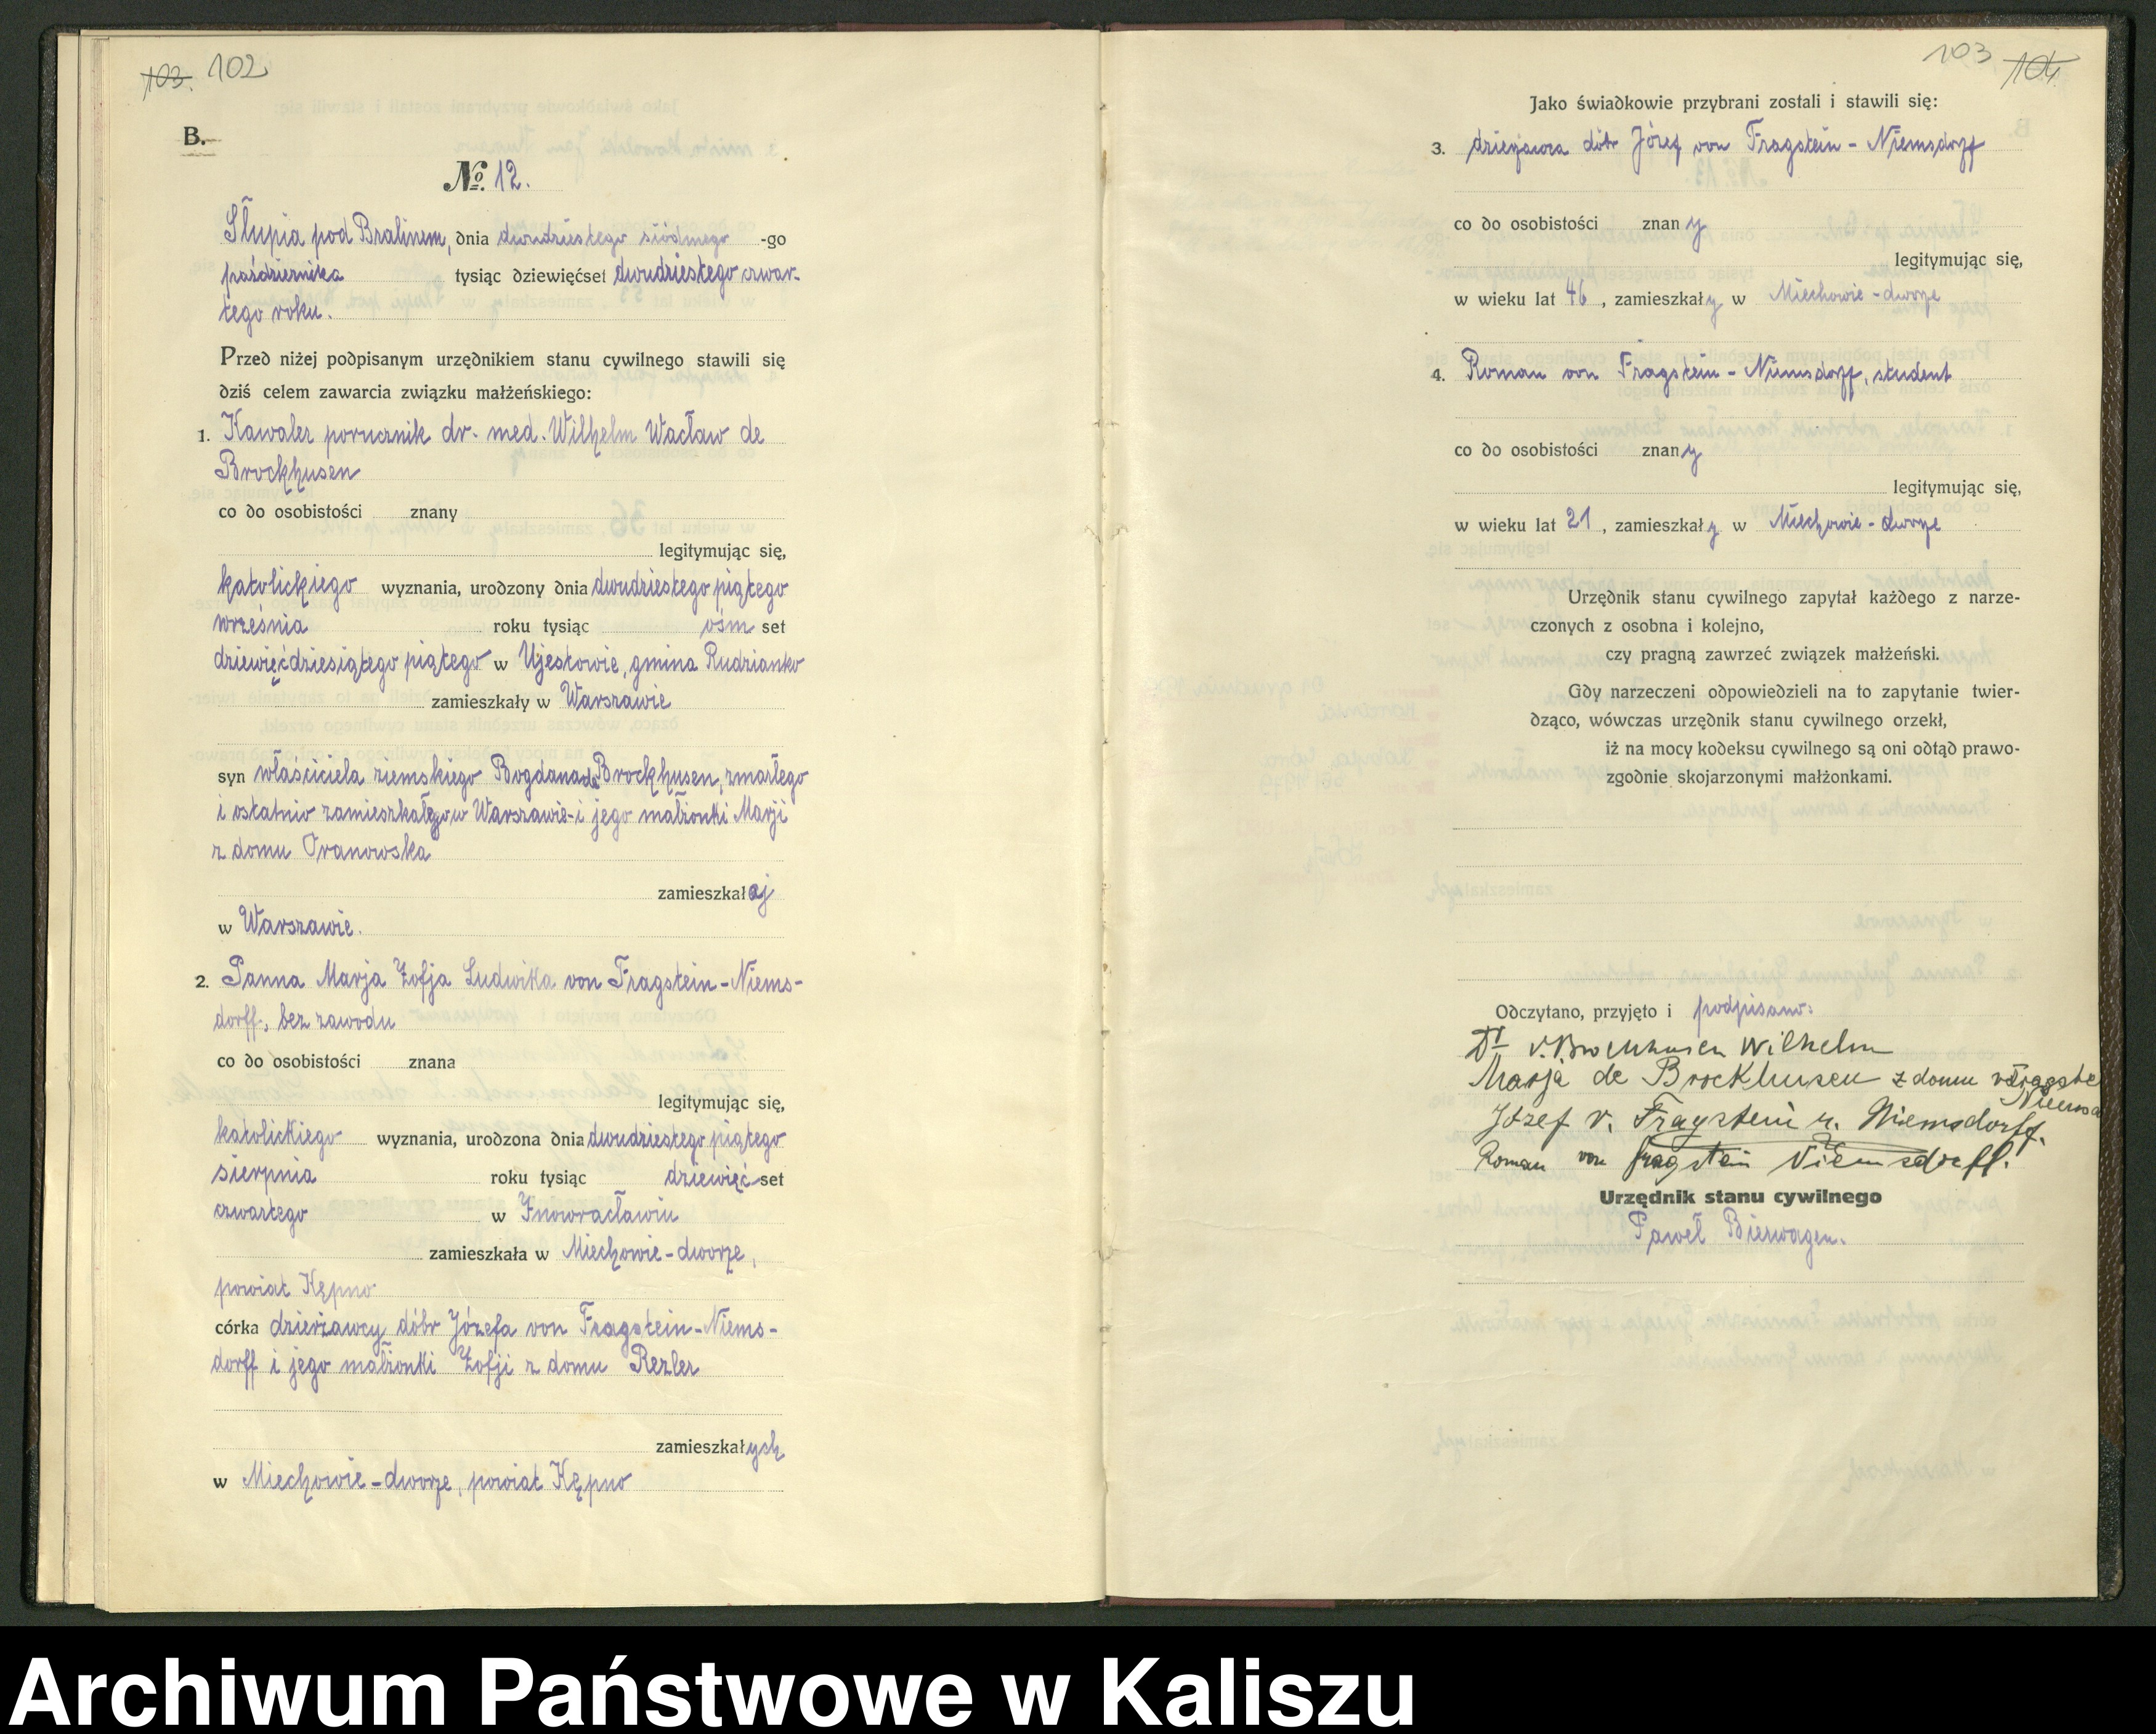 103. 102
B.
№. 12.
Słupia pod Bralinem, dnia dwudziestego siódmego -go
października tysiąc dziewięćset dwudziestego czwar-
tego roku.
Przed niżej podpisanym urzędnikiem stanu cywilnego stawili się
dziś celem zawarcia związku małżeńskiego:
1. Kawaler porucznik dr. med. Wilhelm Wacław de
Brockhusen
co do osobistości znany
legitymując się,
katolickiego wyznania, urodzony dnia dwudziestego piątego
września roku tysiąc ośm set
dziewięćdziesiątego piątego w Ujestowie, gmina Rudzianko
zamieszkały w Warszawie
syn właściciela ziemskiego Bogdana de Brockhusen, zmarłego
i ostatnio zamieszkałego w Warszawie i jego małżonki Marji
z domu Iranowska
zamieszkałej
w Warszawie.
2. Panna Marja Zofja Ludwika von Fragstein-Niems-
dorff, bez zawodu
co do osobistości znana
legitymując się,
katolickiego wyznania, urodzona dnia dwudziestego piątego
sierpnia roku tysiąc dziewięć set
czwartego w Inowracławiu
zamieszkała w Miechowie-dworze,
powiat Kępno
córka dzierżawcy dóbr Józefa von Fragstein-Niems-
dorff i jego małżonki Zofji z domu Rezler
zamieszkałych
w Miechowie-dworze, powiat Kępno
103 104.
Jako świadkowie przybrani zostali i stawili się:
3. dzierżawca dóbr Józef von Fragstein-Niemsdorff
co do osobistości znany
legitymując się,
w wieku lat 46, zamieszkały w Miechowie-dworze
4. Roman von Fragstein-Niemsdorff, student
co do osobistości znany
legitymując się,
w wieku lat 21, zamieszkały w Miechowie-dworze
Urzędnik stanu cywilnego zapytał każdego z narze-
czonych z osobna i kolejno,
czy pragną zawrzeć związek małżeński.
Gdy narzeczeni odpowiedzieli na to zapytanie twier-
dząco, wówczas urzędnik stanu cywilnego orzekł,
iż na mocy kodeksu cywilnego są oni odtąd prawo-
zgodnie skojarzonymi małżonkami.
Odczytano, przyjęto i podpisano:
Dr v. Brockhusen Wilhelm
Marja de Brockhusen z domu v. Fragste
Niemsd
Józef v. Fragstein u. Niemsdorff.
Roman von Fragstein Niemsdorff.
Urzędnik stanu cywilnego
Paweł Bierwagen.
Archiwum Państwowe w Kaliszu